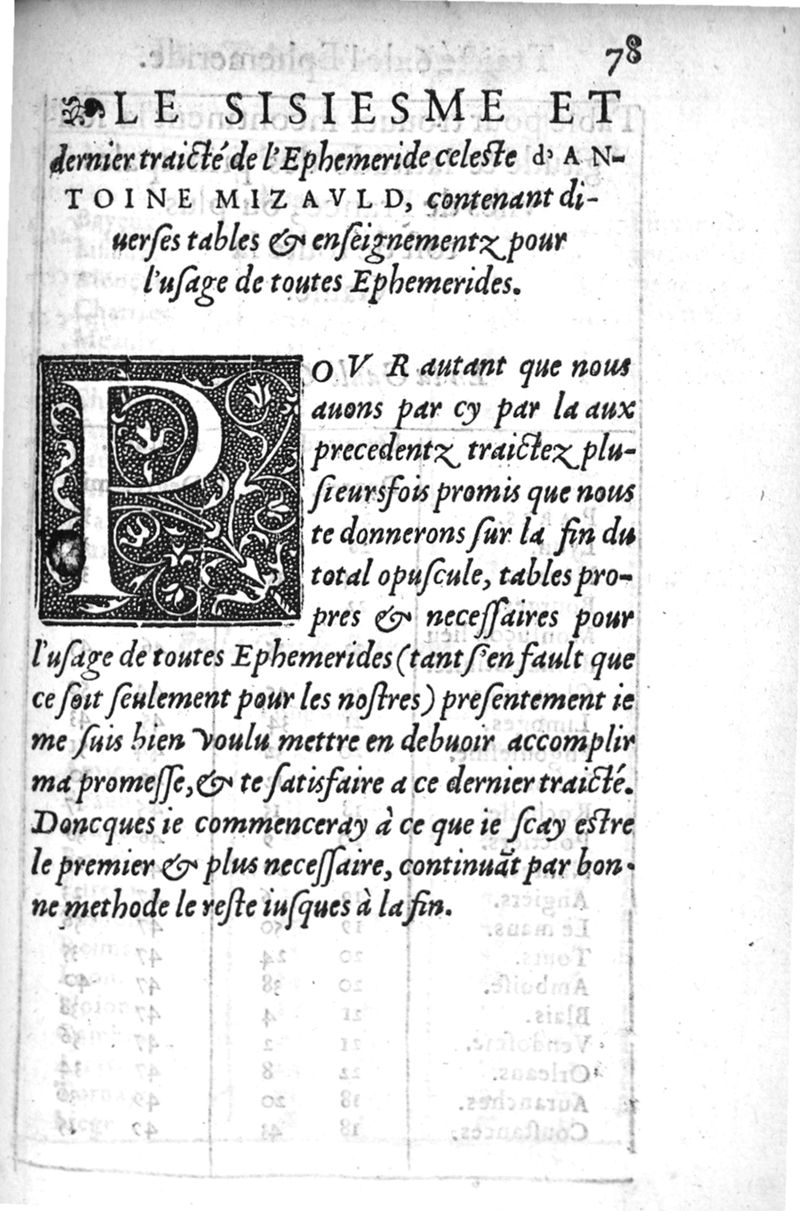 78
LE SISIESME ET
dernier traicté de l'Ephemeride celeste d'AN-
TOINE MIZAVLD, contenant di-
uerſes tables & enſeignementz pour
l'uſage de toutes Ephemerides.
POVR autant que nous
auons par cy par la aux
precedentz traictez plu-
ſieursfois promis que nous
te donnerons ſur la fin du
total opuſcule, tables pro-
pres & neceſſaires pour
l'uſage de toutes Ephemerides (tant ſ'en fault que
ce ſoit ſeulement pour les noſtres) preſentement ie
me ſuis bien voulu mettre en debuoir accomplir
ma promeſſe, & te ſatisfaire a ce dernier traicté.
Doncques ie commenceray à ce que ie ſcay eſtre
le premier & plus neceſſaire, continuāt par bon-
ne methode le reſte iuſques à la fin.